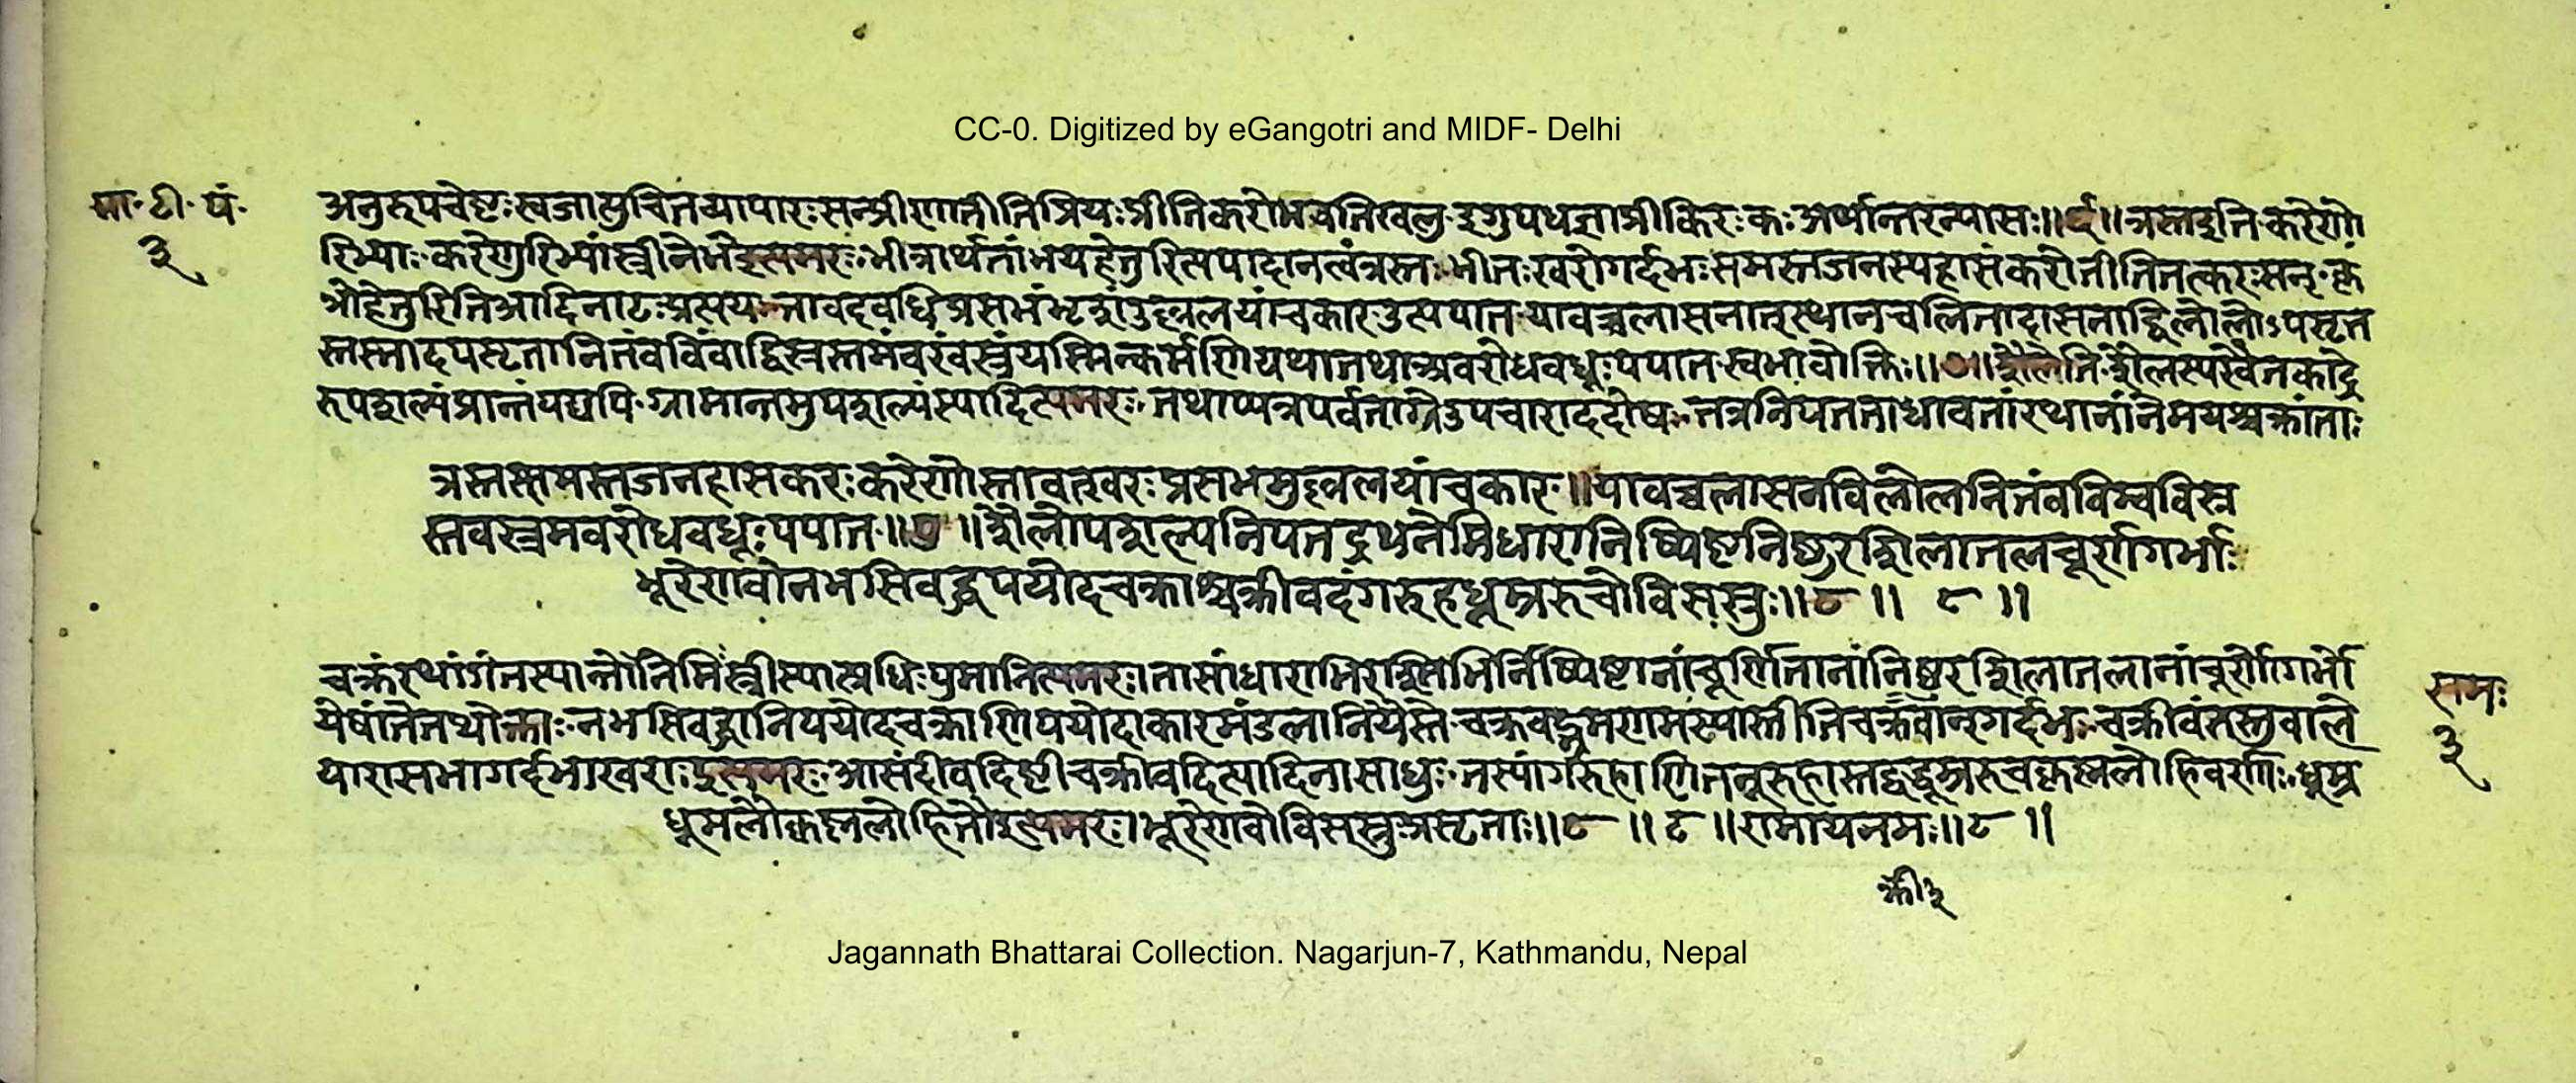 CC-0. Digitized by eGangotri and MIDF- Delhi
मा॰ टी॰ पं॰
३
अनुरूपचेष्टःस्वजात्युचितव्यापारःसन्प्रीणातीतिप्रियःप्रीतिकरोभवतिखलु इगुपधज्ञाप्रीकिरःकःअर्थान्तरन्यासः॥६॥त्रस्तइति करेणो
रिभ्याः करेणुरिभ्यांस्त्रीनेभेइत्यमरः भीत्रार्थानांभयहेतुरित्यपादानत्वंत्रस्तः भीतःखरोगर्दभःसमस्तजनस्यहासंकरोतीतितत्करःसन् कृ
ञोहेतुरितिआदिनाटःप्रत्ययः तावदवधिप्रसभंभृशउल्ललयांचकार उत्पपात यावच्चलासनात्स्थानचलितादासनाद्विलोलोऽपसृत
स्तस्मादपसृतानितंवविंवाद्विस्रस्तमंवरंवस्त्रंयस्मिन्कर्मणियथातथाअवरोधवधूःपपात स्वभावोक्तिः॥७॥शैलेति शैलस्यरैवतकाद्रे
रुपशल्यंप्रान्तंयद्यपि ग्रामान्तमुपशल्यंस्यादित्यमरः तथाप्यत्रपर्वताग्रेउपचाराददोषः तत्रनिपततांधावतांरथानांनेमयश्चक्रांताः
त्रस्तस्समस्तजनहासकरःकरेणोस्तावत्खरःप्रसभमुल्ललयांचकार॥यावच्चलासनविलोलनितंवविम्वविस्र
स्तवस्त्रमवरोधवधूःपपात॥७॥शैलोपशल्यनिपतद्रथनेमिधारानिष्पिष्टनिष्ठुरशिलातलचूर्णगर्भाः
भूरेणवोनभसिवद्धपयोदचक्राश्चक्रीवदंगरुहधूम्ररुचोविसस्रुः॥८॥ ८॥
चक्रंरथांगंतस्यान्तोनेमिःस्त्रीस्यात्प्रधिःपुमानित्यमरः तासांधाराभिरश्रिभिर्निष्पिष्टानांचूर्णितानांनिष्ठुरशिलातलानांचूर्णोगर्भो
येषांतेतथोक्ताः नभसिवद्धानिपयोदचक्राणिपयोदाकारमंडलानियैस्ते चक्रवद्भ्रमणमस्यास्तीतिचक्रीवान्गर्दभः चक्रीवंतस्तुवाले
यारासभागर्दभाःखराःइत्यमरः आसंदीवदष्ठीचक्रीवदित्यादिनासाधुः तस्यांगरुहाणितनूरुहास्तद्वद्धूम्ररुचःकृष्णलोहितवर्णाः धूम्र
धूमलौकृष्णलोहितौइत्यमरः भूरेणवोविसस्रुःअसृटताः॥८॥ ८॥रामायनमः॥८॥
राम
३
क्रो३
Jagannath Bhattarai Collection. Nagarjun-7, Kathmandu, Nepal